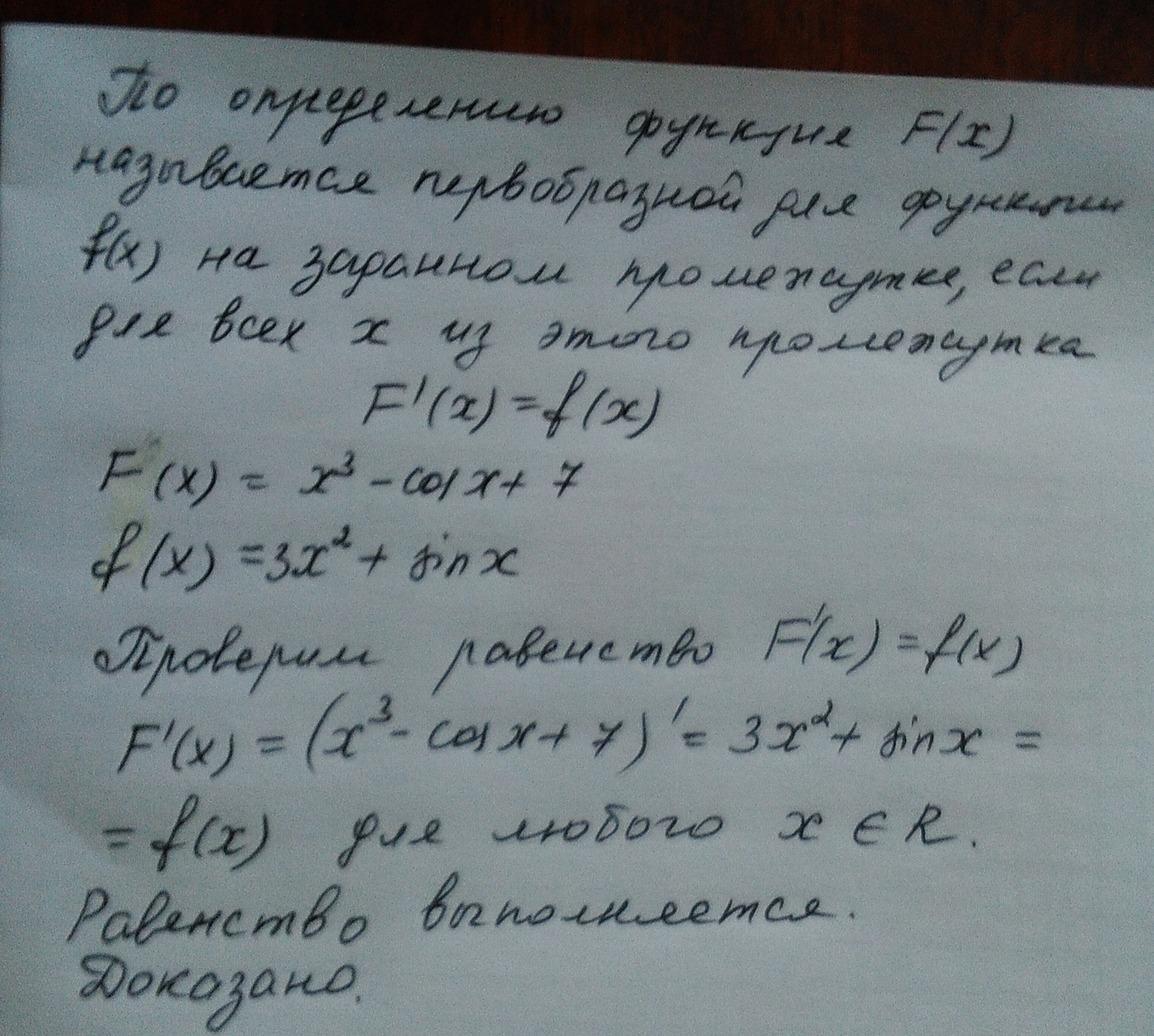 По определению функция F(x)
называется первобразной для функции
f(x) на заданном промежутке, если
для всех x из этого промежутка
F'(x) = f(x)
F(x) = x³ - cos x + 7
f(x) = 3x² + sin x
Проверим равенство F'(x) = f(x)
F'(x) = (x³ - cos x + 7)' = 3x² + sin x =
= f(x) для любого x ∈ R.
Равенство выполняется.
Доказано.